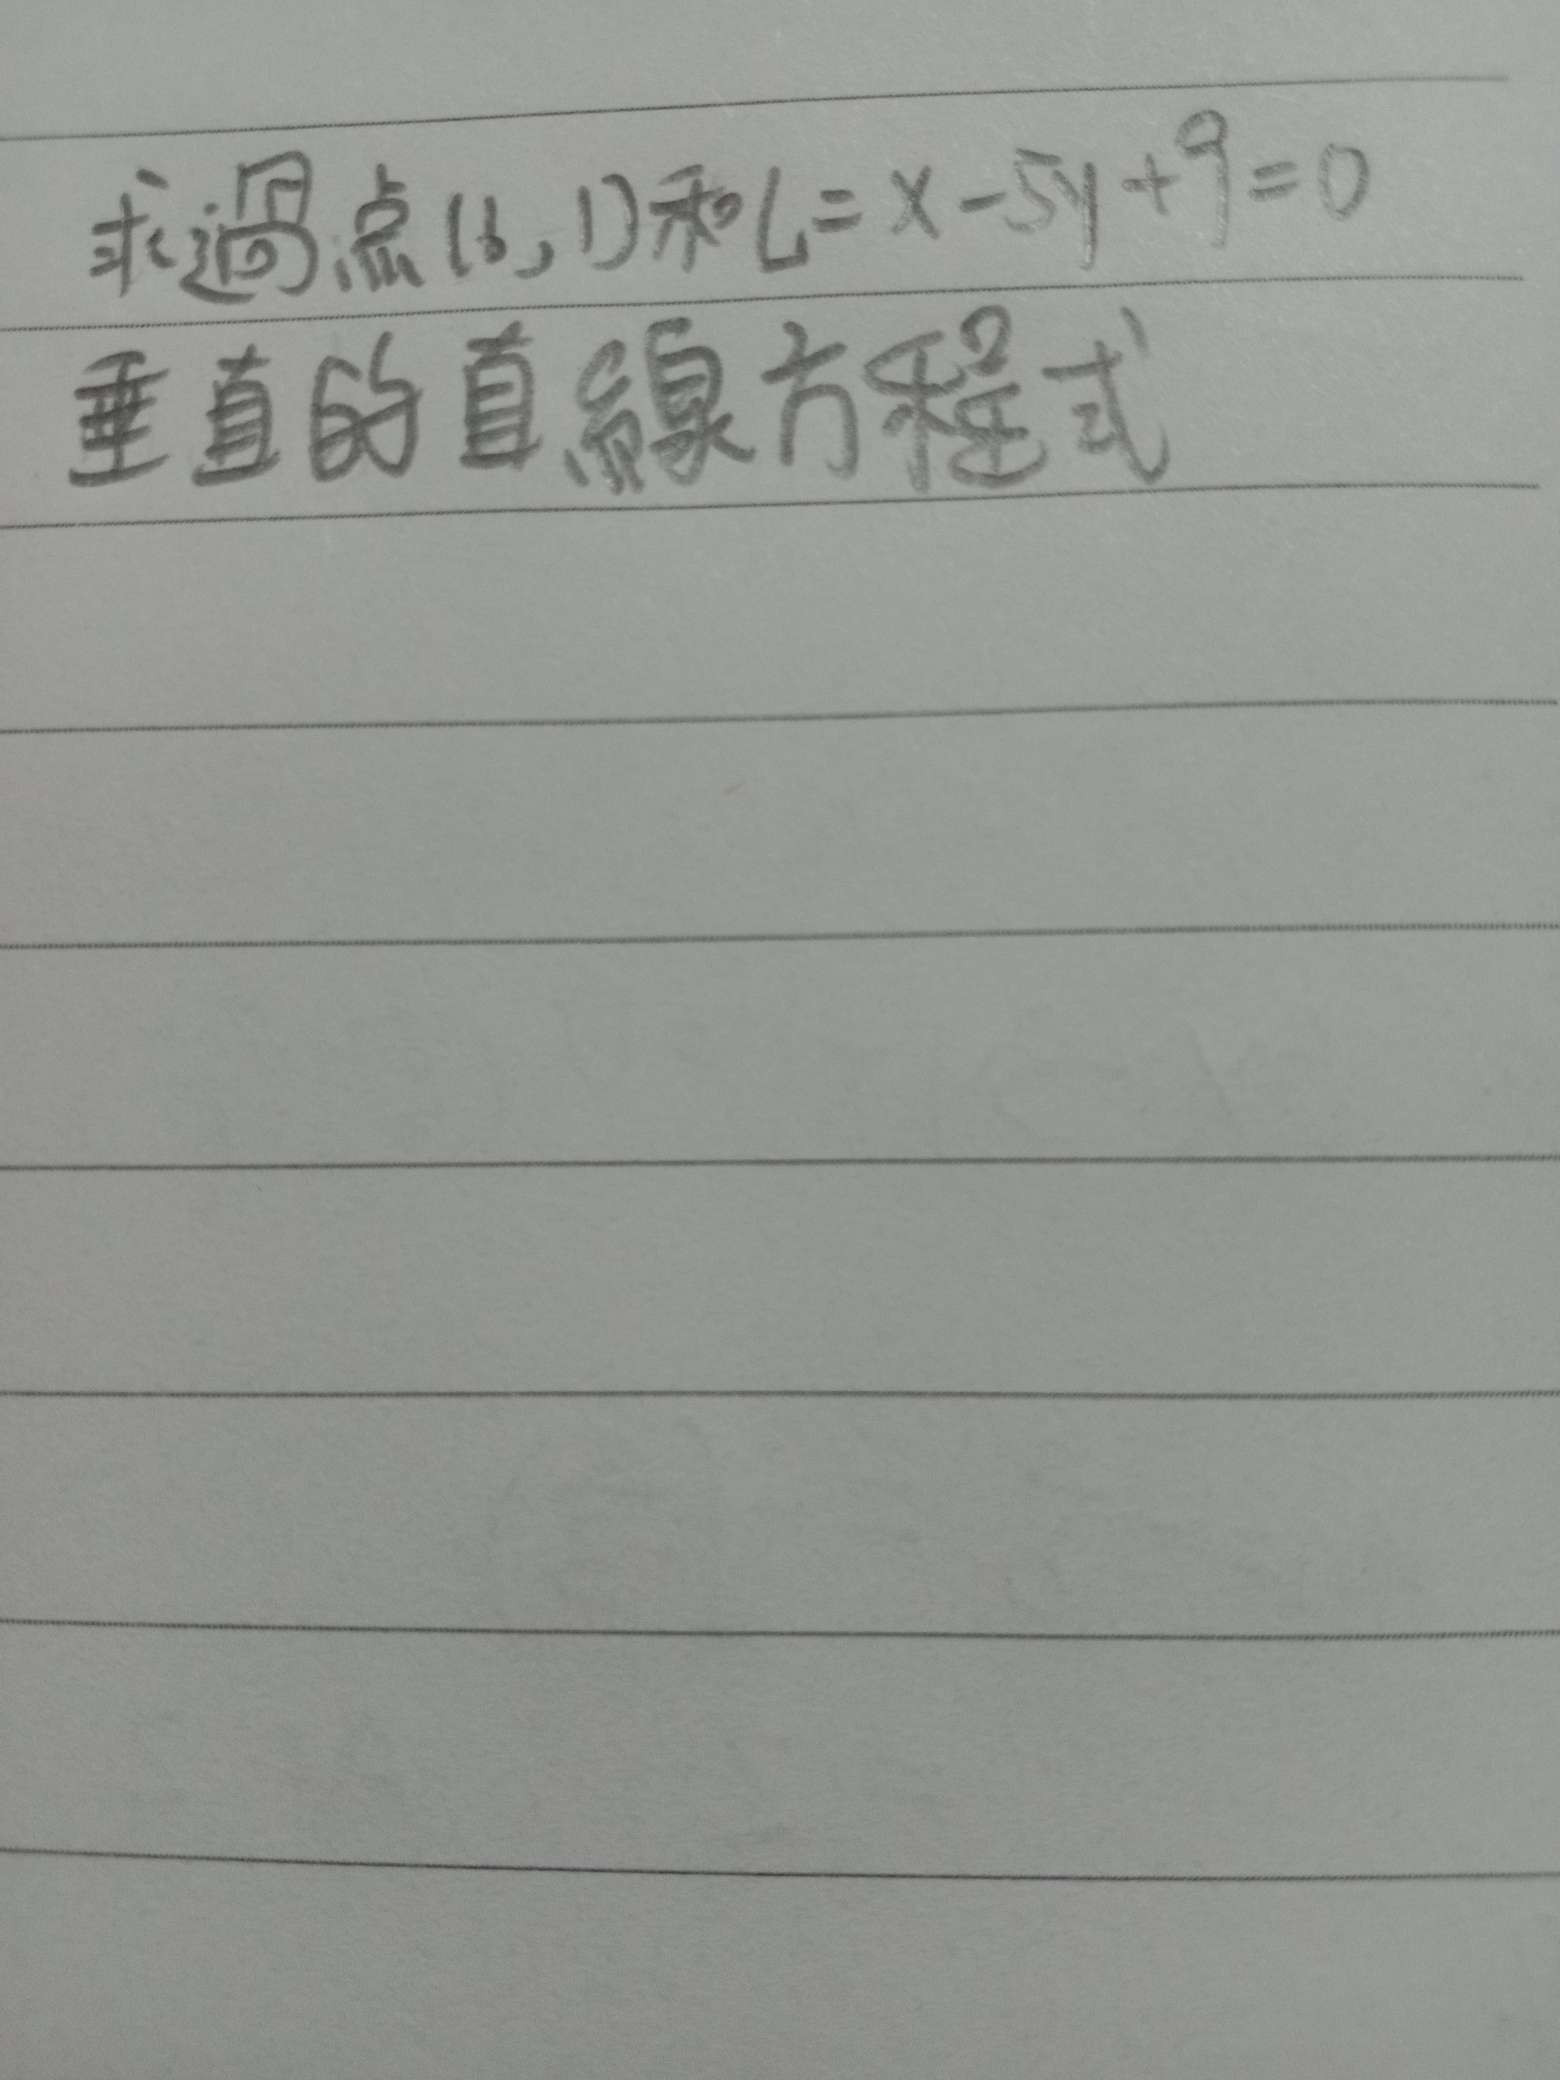 求過点(6,1)和L=x-5y+9=0
垂直的直線方程式